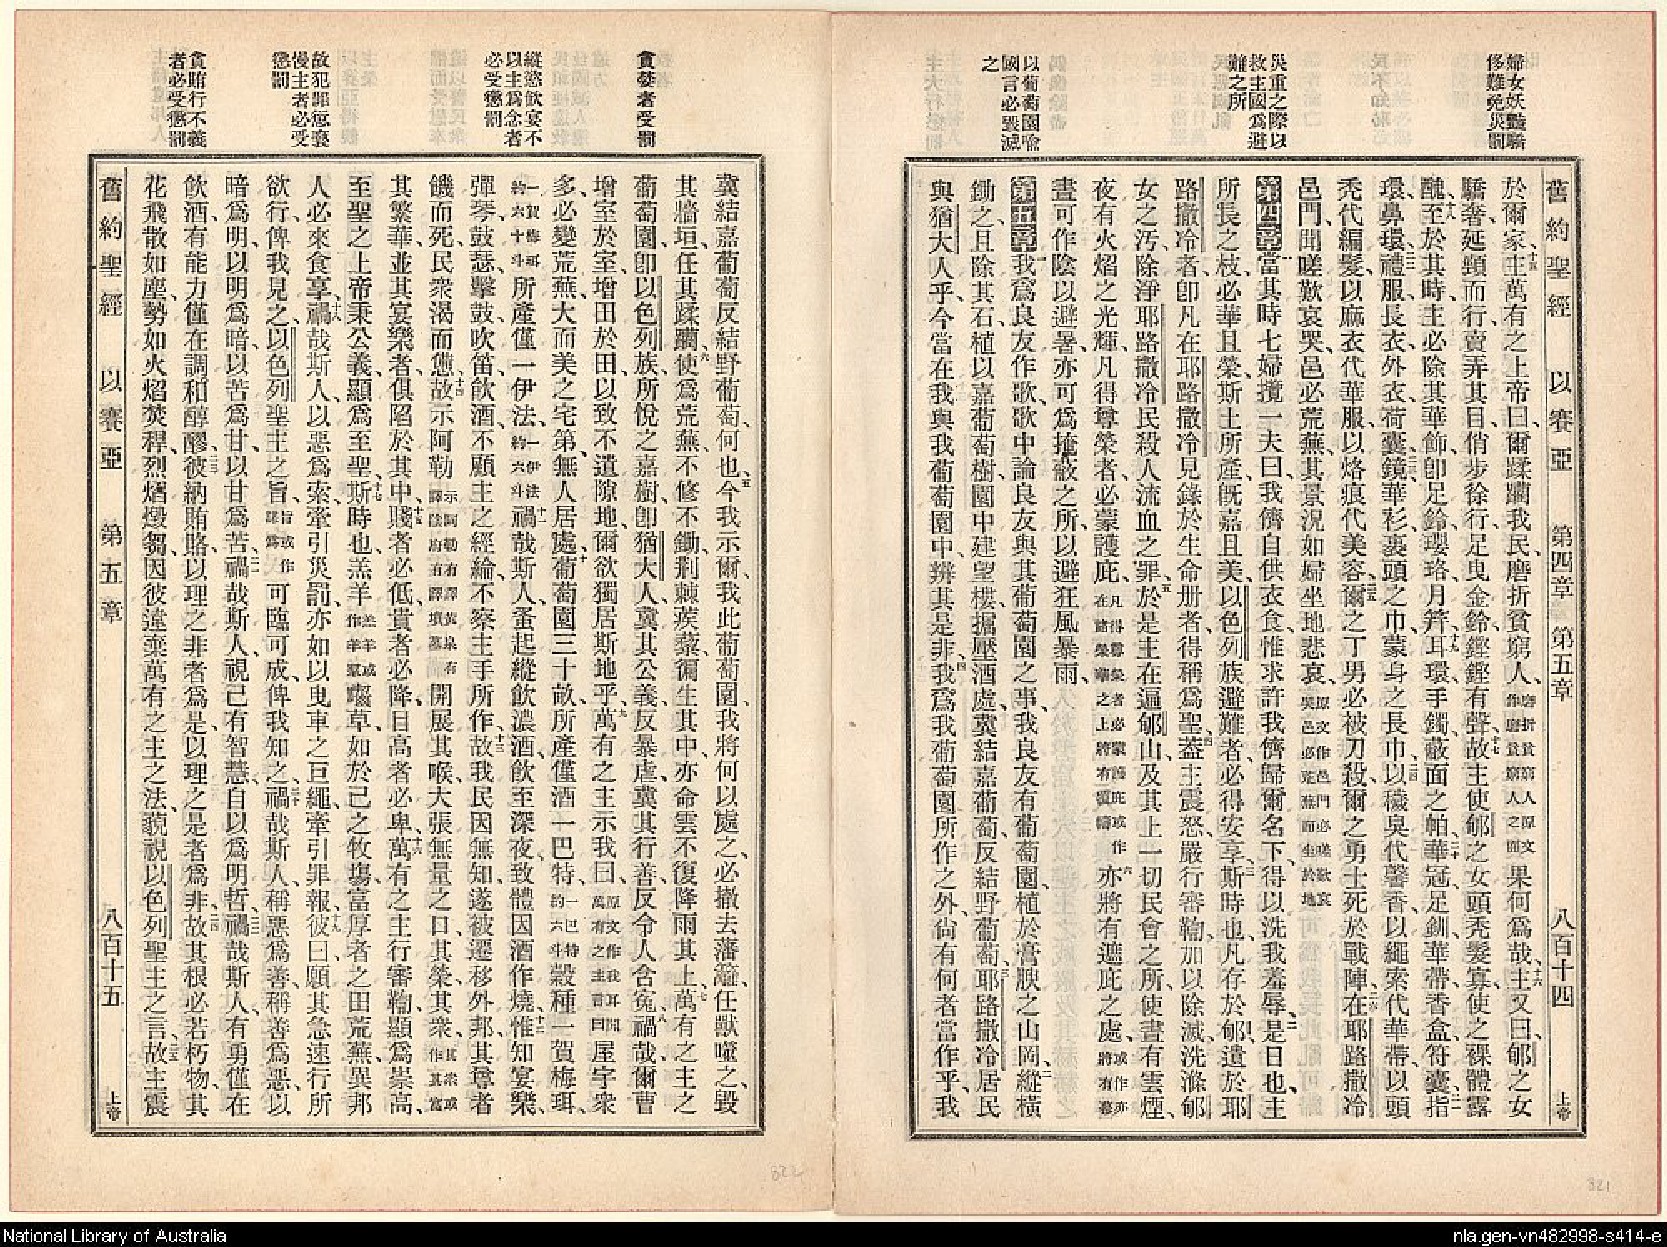 婦女妖豔驕
侈難免災罰
災重之際以
救主國爲避
難之所
以葡萄園喻
國言必毀滅
之
舊約聖經 以賽亞 第四章 第五章 八百十四 上帝
於爾家、主萬有之上帝曰、爾蹂躪我民、磨折貧窮人、果何爲哉、主又曰、郇之女
驕奢延頸而行、賣弄其目、俏步徐行、足曳金鈴、鏗鏗有聲、故主使郇之女頭禿髮寡、使之裸體露
醜、至於其時、主必除其華飾、卽足鈴、瓔珞、月笄、耳環、手鐲、蔽面之帕、華冠、足釧、華帶、香盒、符囊、指
環、鼻環、禮服、長衣、外衣、荷囊、鏡、華衫、裹頭之巾、蒙身之長巾、以穢臭代馨香、以繩索代華帶、以頭
禿代編髮、以麻衣代華服、以烙痕代美容、爾之丁男必被刀殺、爾之勇士死於戰陣、在耶路撒冷
邑門、聞嗟歎哀哭、邑必荒蕪、其景況如婦坐地悲哀、
第四章 當其時、七婦攬一夫曰、我儕自供衣食、惟求許我儕歸爾名下、得以洗我羞辱、是日也、主
所長之枝、必華且榮、斯土所產、旣嘉且美、以色列族避難者、必得安享、斯時也、凡存於郇遺於耶
路撒冷者、卽凡在耶路撒冷見錄於生命册者、得稱爲聖、蓋主震怒、嚴行審鞫、加以除滅、洗滌郇
女之污、除淨耶路撒冷民殺人流血之罪、於是主在逼郇山、及其上一切民會之所、使晝有雲煙、
夜有火焰之光輝、凡得尊榮者必蒙護庇、亦將有遮庇之處、
晝可作陰以避暑、亦可爲掩蔽之所、以避狂風暴雨、
第五章 我爲良友作歌、歌中論良友與其葡萄園之事、我良友有葡萄園、植於膏腴之山岡、縱橫
鋤之、且除其石、植以嘉葡萄樹、園中建望樓、掘壓酒處、冀結嘉葡萄、反結野葡萄、耶路撒冷居民
與猶大人乎、今當在我與我葡萄園中、辨其是非、我爲我葡萄園所作之外、尙有何者當作乎、我
貪婪者受罰
縱慾飲宴不
以主爲念者
必受懲罰
故犯罪愆褻
慢主者必受
懲罰
貪賄行不義
者必受懲罰
冀結嘉葡萄、反結野葡萄、何也、今我示爾、我此葡萄園、我將何以處之、必撤去藩籬、任獸嚙之、毀
其牆垣、任其蹂躪、使爲荒蕪、不修不鋤、荆棘蒺藜、徧生其中、亦命雲不復降雨其上、萬有之主之
葡萄園、卽以色列族、所悅之嘉樹、卽猶大人、冀其公義、反暴虐、冀其行善、反令人含寃、禍哉爾曹
增室於室、增田於田、以致不遺隙地、爾欲獨居斯地乎、萬有之主示我曰、屋宇衆
多、必變荒蕪、大而美之宅第、無人居處、葡萄園三十畝、所產僅酒一巴特、一巴特約六斗 穀種一賀梅珥、
一賀梅珥約六十斗 所產僅一伊法、一伊法約六斗 禍哉斯人、蚤起縱飲濃酒、飲至深夜、致體因酒作燒、惟知宴樂、
彈琴、鼓瑟、擊鼓、吹笛、飲酒、不顧主之經綸、不察主手所作、故我民因無知、遂被遷移外邦、其尊者
饑而死、民衆渴而憊、故示阿勒 開展其喉、大張無量之口、其榮、其衆、
其繁華、並其宴樂者、俱陷於其中、賤者必低、貴者必降、目高者必卑、萬有之主行審鞫、顯爲崇高、
至聖之上帝秉公義、顯爲至聖、斯時也、羔羊 齧草、如於己之牧場、富厚者之田荒蕪、異邦
人必來食享、禍哉斯人、以惡爲索、牽引災罰、亦如以曳車之巨繩、牽引罪報、彼曰、願其急速行所
欲行、俾我見之、以色列聖主之旨、可臨可成、俾我知之、禍哉斯人、稱惡爲善、稱善爲惡、以
暗爲明、以明爲暗、以苦爲甘、以甘爲苦、禍哉斯人、視己有智慧、自以爲明哲、禍哉斯人、有勇僅在
飲酒、有能力僅在調和醇醪、彼納賄賂、以理之非者爲是、以理之是者爲非、故其根必若朽物、其
花飛散如塵、勢如火焰焚稈、烈熠燬芻、因彼違棄萬有之主之法、藐視以色列聖主之言、故主震
舊約聖經 以賽亞 第五章 八百十五 上帝
322
321
National Library of Australia
nla.gen-vn482998-s414-e